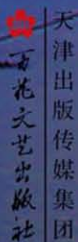 天津出版传媒集团
百花文艺出版社